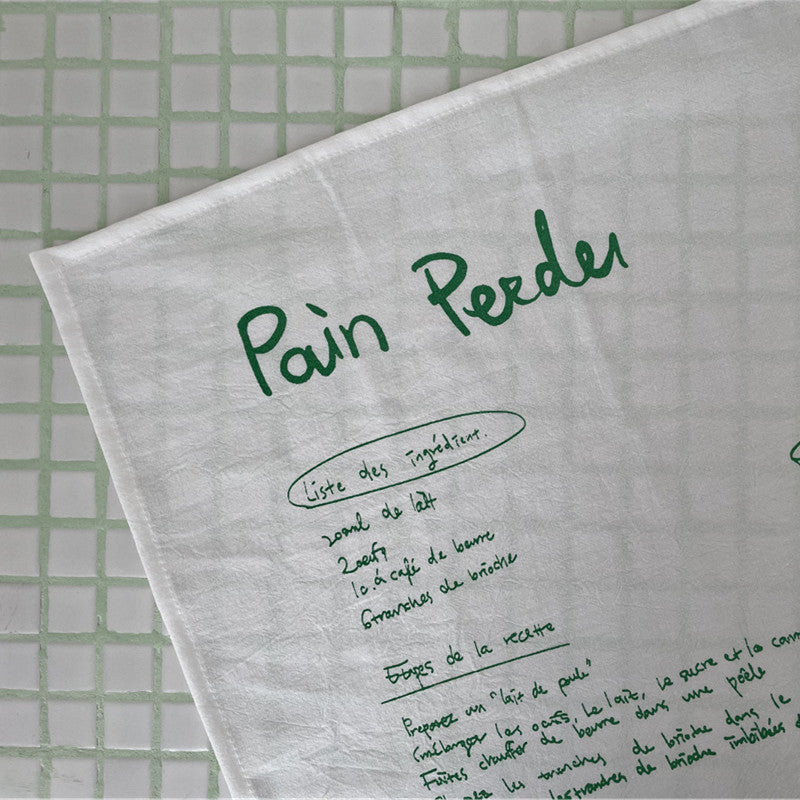 Pain Perdu
Liste des ingrédient.
200ml de lait
2oeufs
1c.à café de beurre
6tranches de brioche
Etapes de la recette
Preparez un "lait de poule"
(mélangez les oeufs, le lait, le sucre et la cann
Faites chauffer de beurre dans une poêle
les tranches de brioche dans le
les tranches de brioche imbibées